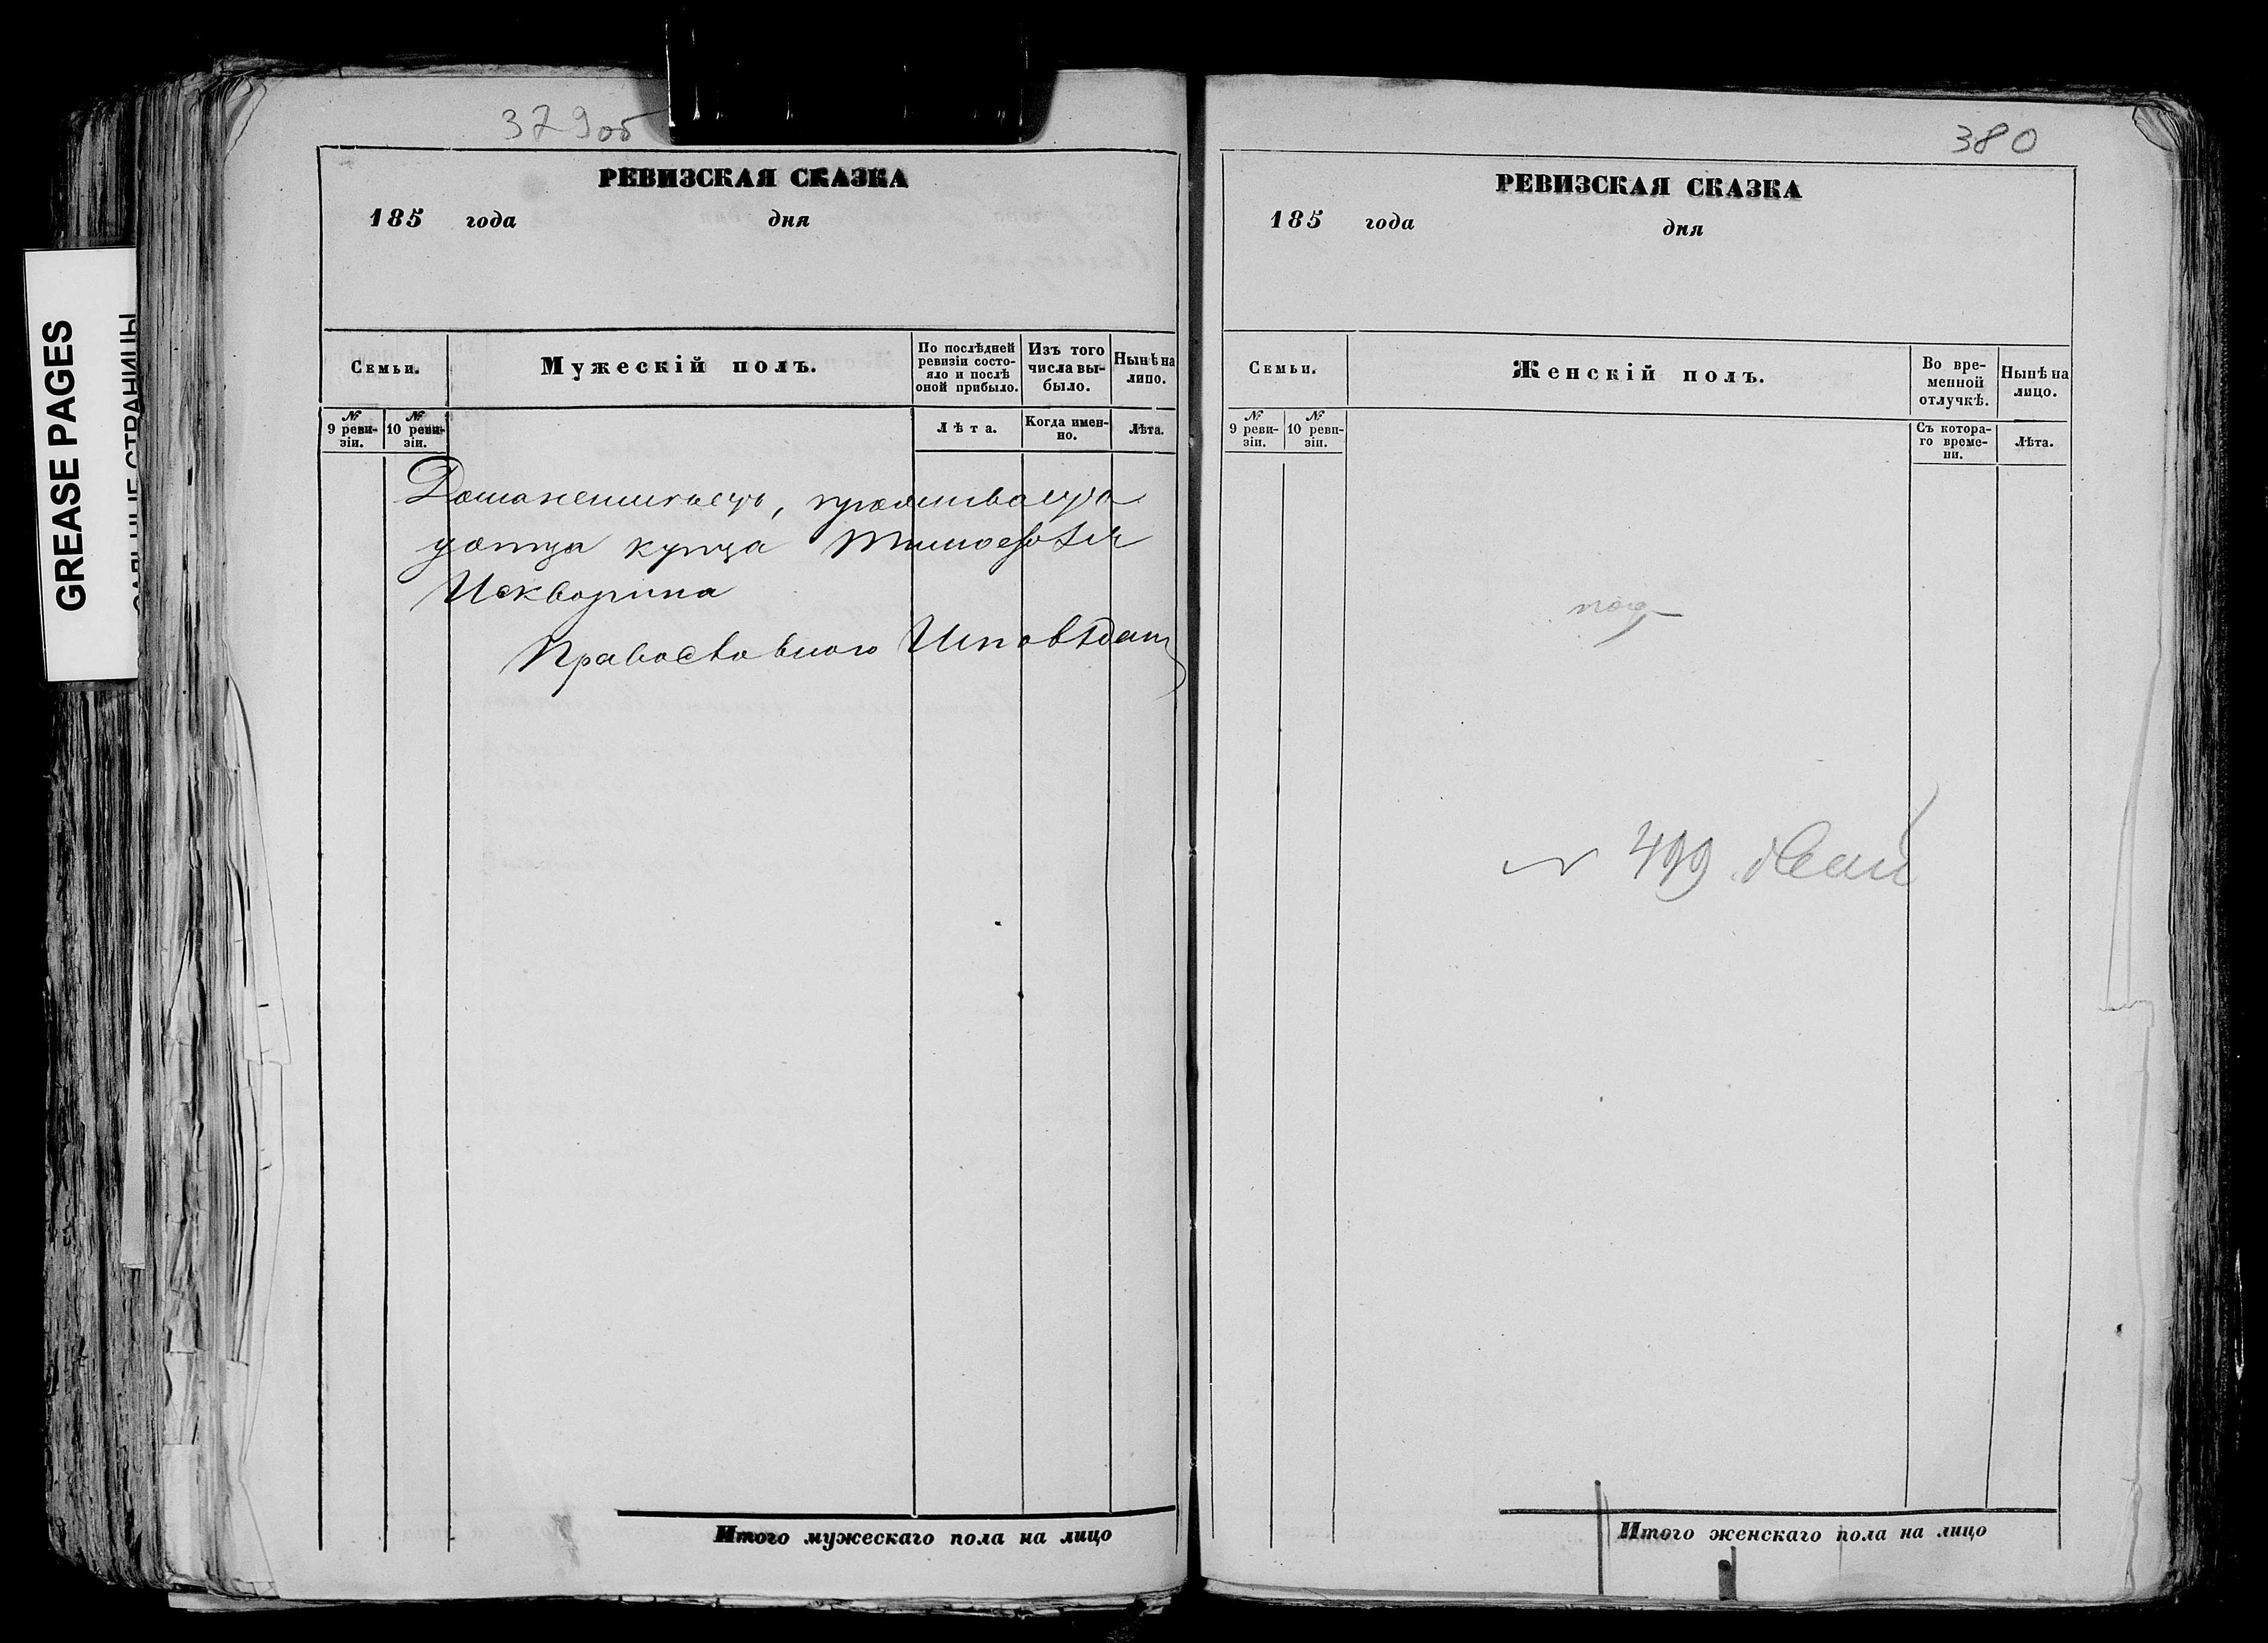 GREASE PAGES
379об
РЕВИЗСКАЯ СКАЗКА
185 года дня
Семьи.
Мужескій полъ.
По послѣдней ревизіи состояло и послѣ оной прибыло.
Изъ того числа выбыло.
Нынѣ на лицо.
№ 9 ревизіи.
№ 10 ревизіи.
Лѣта.
Когда именно.
Лѣта.
купца
Православного
Итого мужескаго пола на лицо
380
РЕВИЗСКАЯ СКАЗКА
185 года дня
Семьи.
Женскій полъ.
Во временной отлучкѣ.
Нынѣ на лицо.
№ 9 ревизіи.
№ 10 ревизіи.
Съ котораго времени.
Лѣта.
499
Итого женскаго пола на лицо